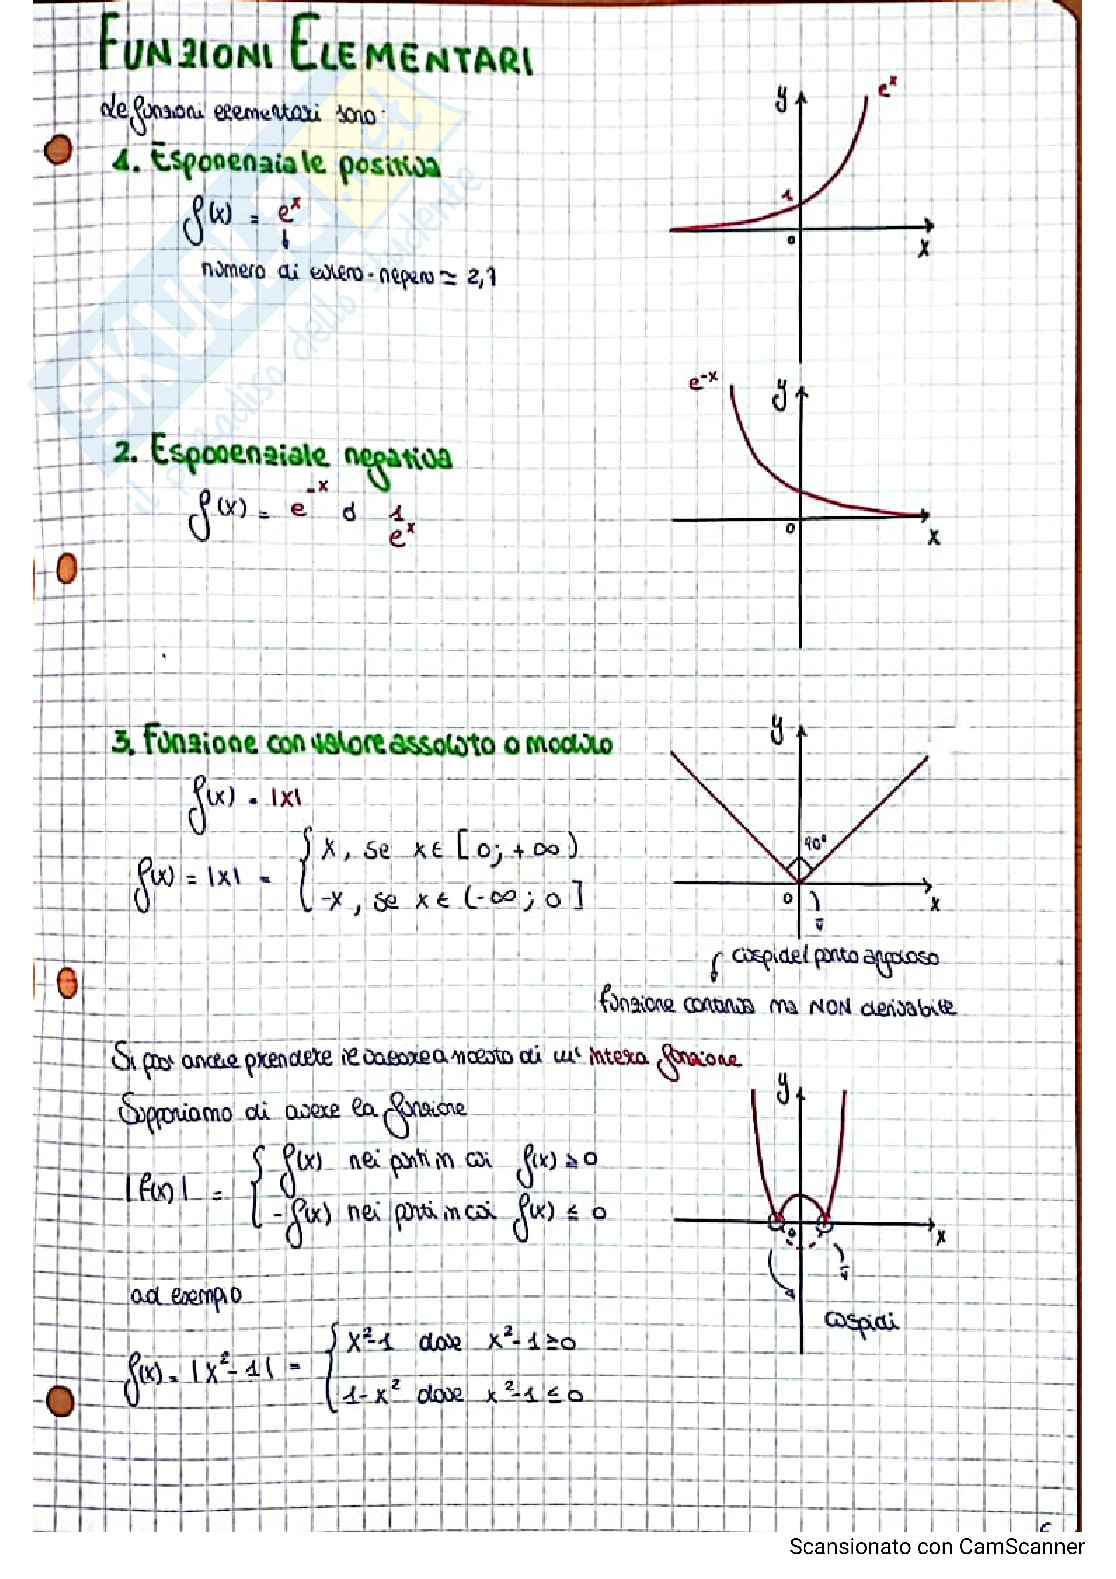 FUNZIONI ELEMENTARI
Le funzioni elementari sono:
1. Esponenziale positiva
f(x) = e^x
numero di eulero-nepero ≃ 2,7
y
e^x
1
0
x
2. Esponenziale negativa
f(x) = e^-x o 1/e^x
e^-x
y
0
x
3. Funzione con valore assoluto o modulo
f(x) = |x|
f(x) = |x| = { x, se x ∈ [0; +∞)
-x, se x ∈ (-∞; 0]
y
90°
0
x
cuspide/punto angoloso
funzione continua ma NON derivabile
Si può anche prendere il valore assoluto di un' intera funzione
Supponiamo di avere la funzione
|f(x)| = { f(x) nei punti in cui f(x) ≥ 0
-f(x) nei punti in cui f(x) ≤ 0
y
0
x
cuspidi
ad esempio
f(x) = |x²-1| = { x²-1 dove x²-1 ≥ 0
1-x² dove x²-1 ≤ 0
SKUOLA.net
il paradiso dello studente
Scansionato con CamScanner